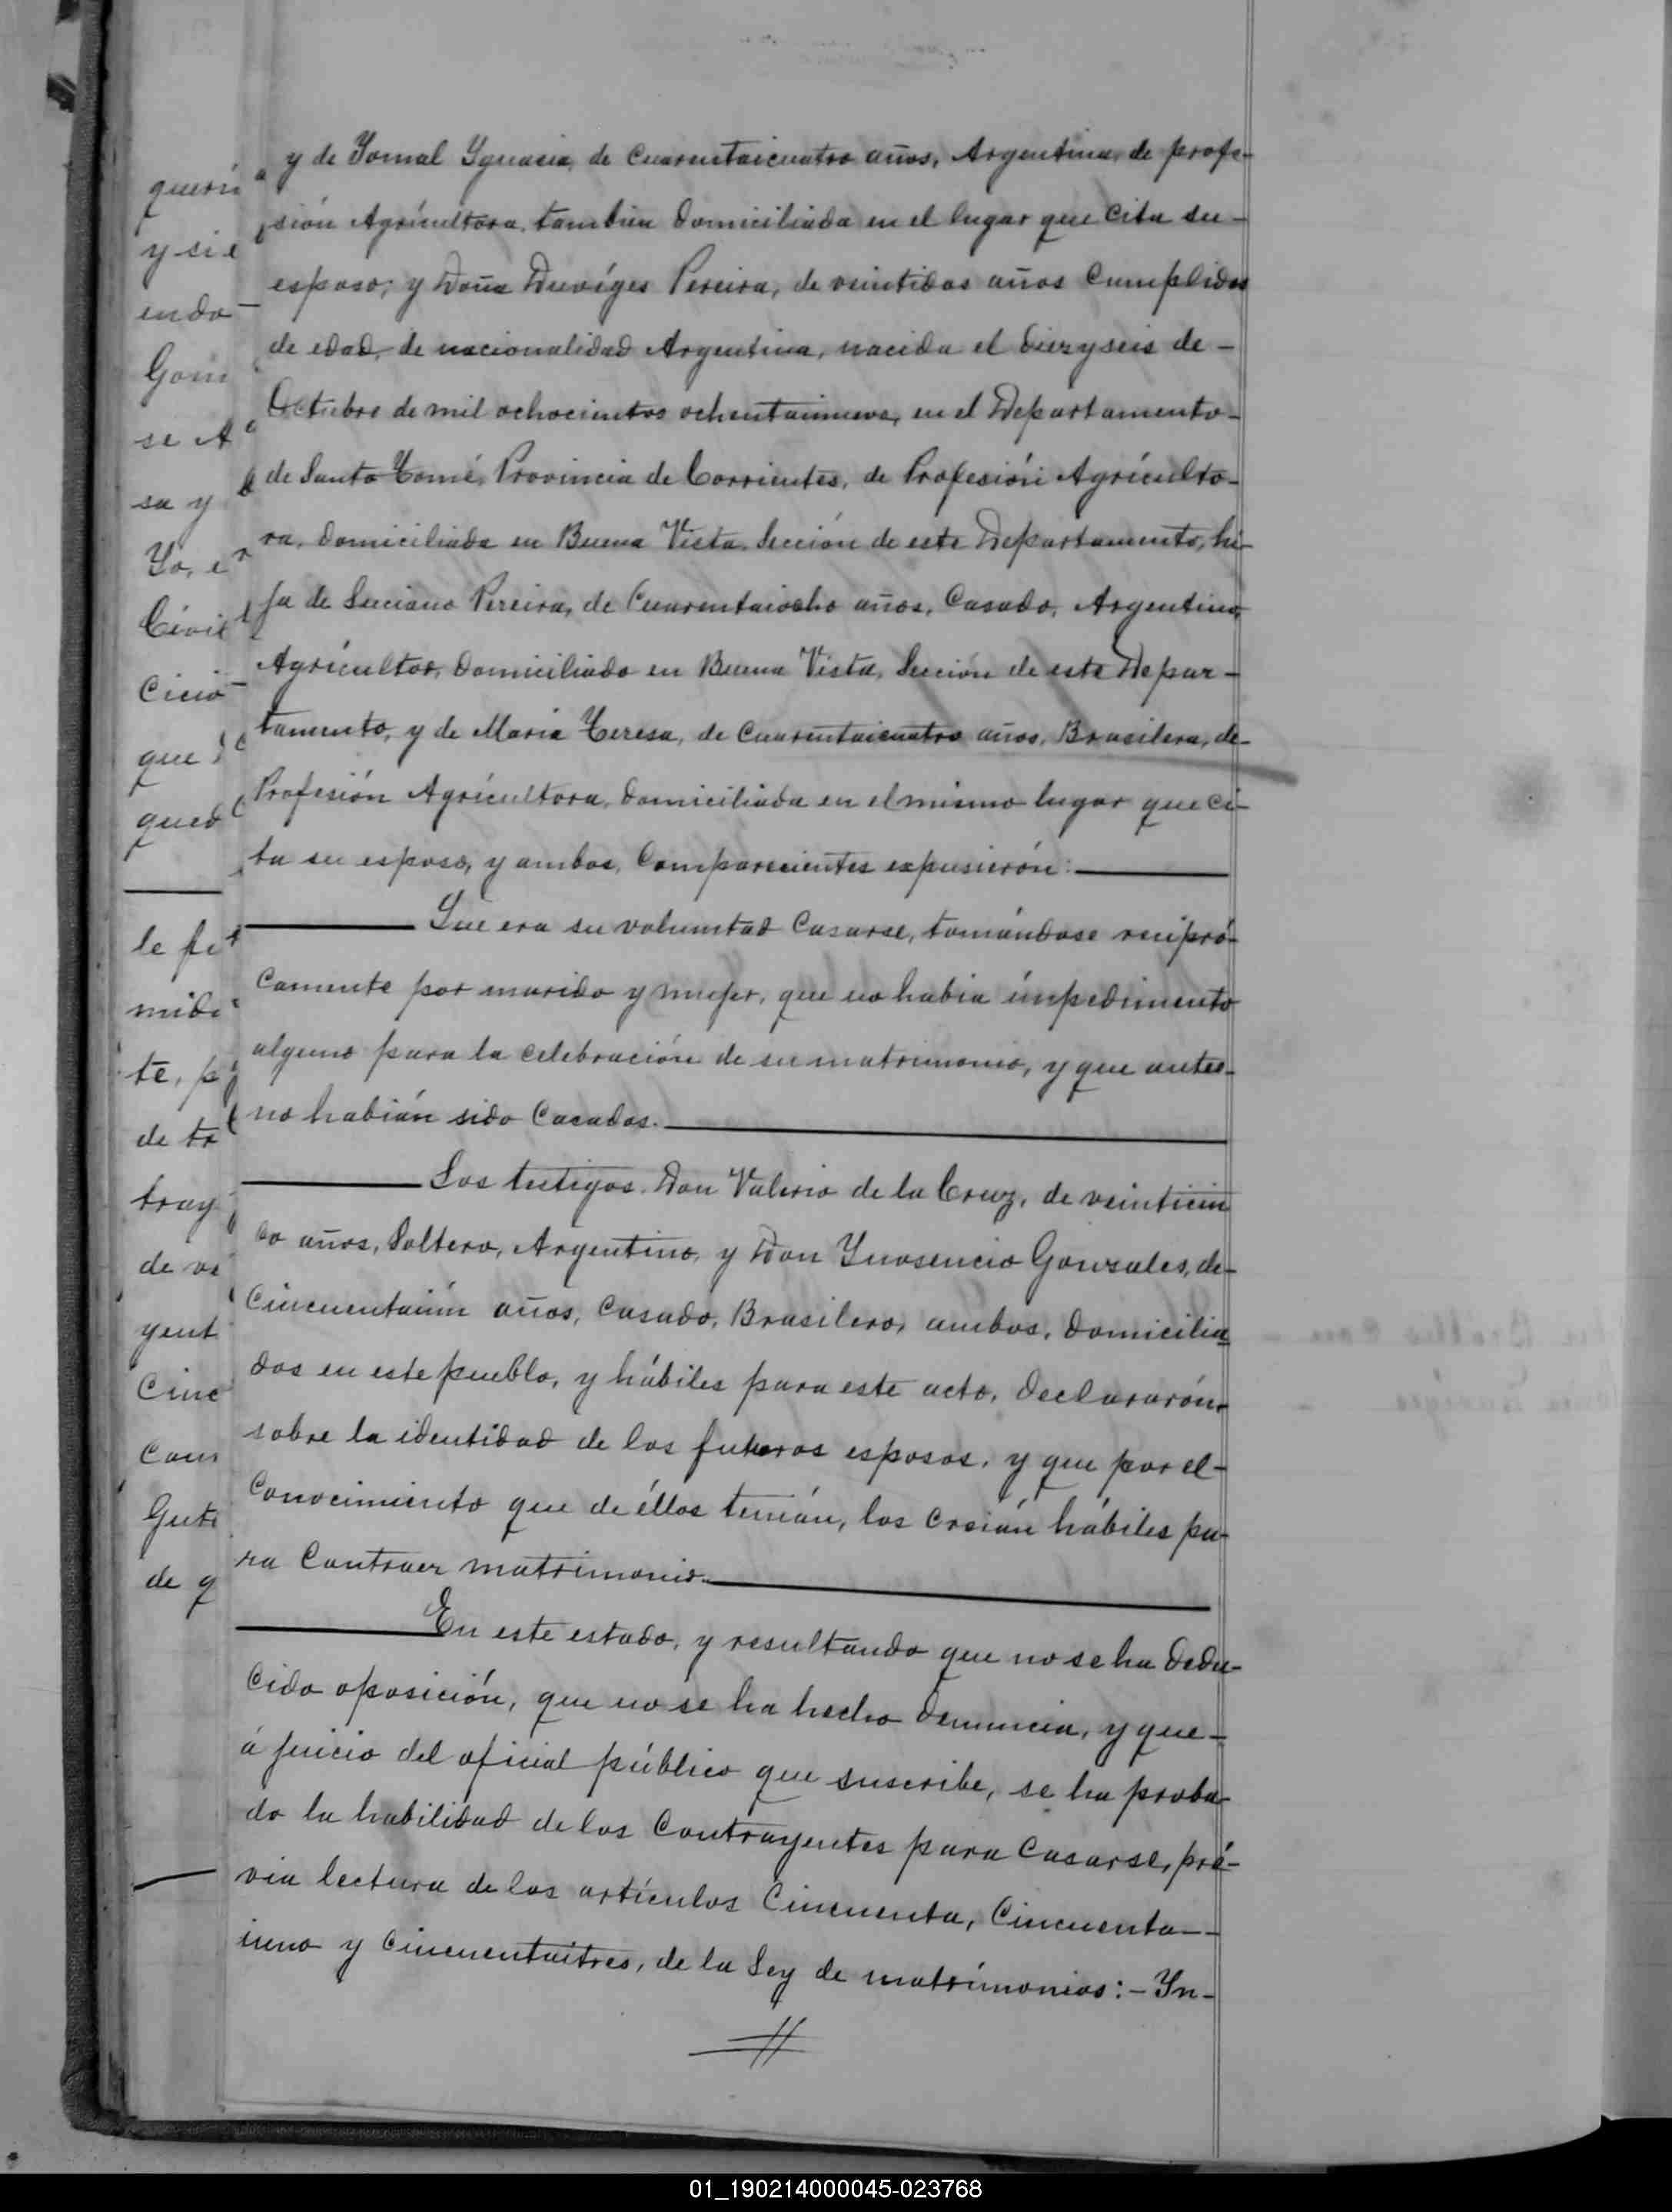 y de Yomal Ygnasia, de Cuarentaicuatro años, Argentina, de profe-
sión Agrícultora, tambien domiciliada en el lugar que Cita su-
esposo; y Doña Duvíges Pereira, de veintidos años Cumplidos
de edad, de nacionalidad Argentina, nacida el diezyseis de-
Octubre de mil ochocientos ochentainueve, en el Departamento-
de Santo Tomé, Provincia de Corrientes, de Profesión Agrículto-
ra, domiciliada en Buena Vista, Sección de este Departamento, hi-
ja de Luciano Pereira, de Cuarentaiocho años, Casado, Argentino,
Agrícultor, domiciliado en Buena Vista, Sección de este Depar-
tamento, y de María Teresa, de Cuarentaicuatro años, Brasilera, de-
Profesión Agrícultora, domiciliada en el mismo lugar que Ci-
ta su esposo, y ambos, Comparecientes expusierón:
Que era su voluntad Casarse, tomándose recipró-
camente por marido y mujer, que no habia ímpedimento
alguno para la celebración de su matrimonio, y que antes-
no habián sido Casados.
Los testigos. Don Valerio de la Cruz, de veinticin
co años, Soltero, Argentino, y Don Ynosencio Gonzales, de-
Cincuentaiún años, Casado, Brasilero, ambos, domicilia
dos en este pueblo, y hábiles para este acto, declararón-
sobre la identidad de los futuros esposos, y que por el-
Conocimiento que de éllos tenián, los Creián hábiles pa-
ra Contraer matrimonio.
En este estado, y resultando que no se ha dedu-
cido oposición, que no se ha hecho denuncia, y que-
á juicio del oficial público que suscribe, se ha proba-
do la habilidad de los Contrayentes para Casarse, pré-
via lectura de los artículos Cincuenta, Cincuenta-
iuno y Cincuentaitres, de la Ley de matrímonios:- Yn-
querii
y sie
endo
Gom
se A
sa y
Yo, e
Cívil
Cició
que
qued
le fi
midi
te, p
de tr
tray
de ve
gent
Cinc
Com
Guti
de q
01_190214000045-023768